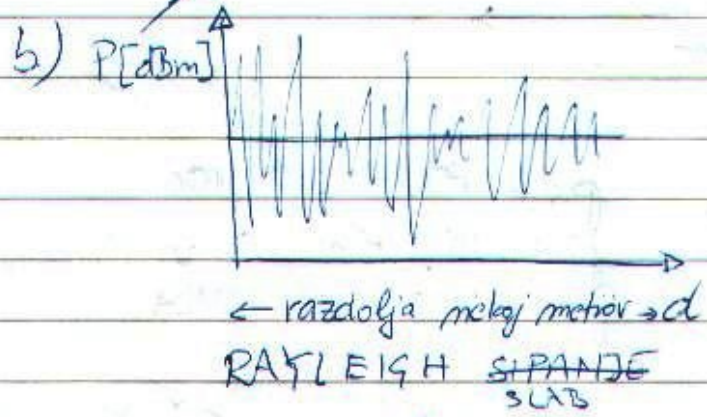 b) P[dBm]
← razdolja nekaj metrov → d
RAYLEIGH SIPANJE
SLAB